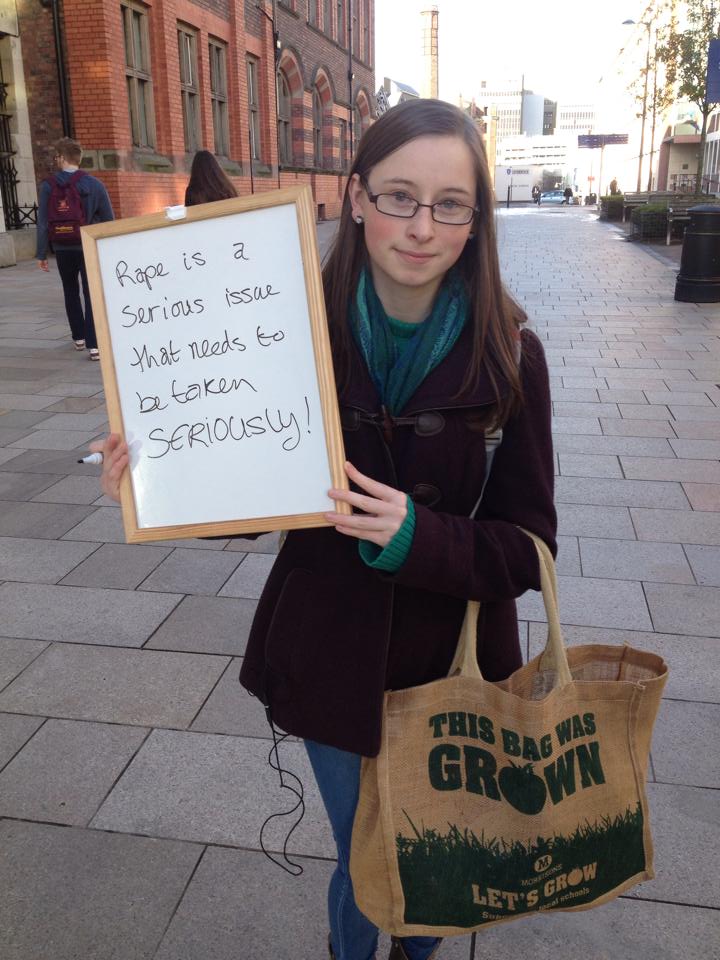 Rape is a
serious issue
that needs to
be taken
SERIOUSLY!
THIS BAG WAS
GROWN
M
MORRISONS
LET'S GROW
local schools